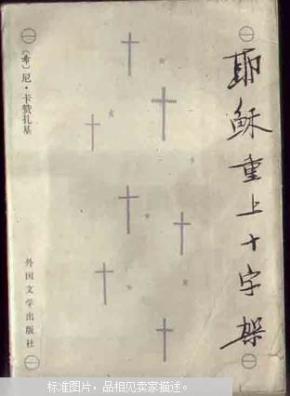 耶稣重上十字架
〔希〕尼·卡赞扎基
外国文学出版社
标准图片，品相见卖家描述。